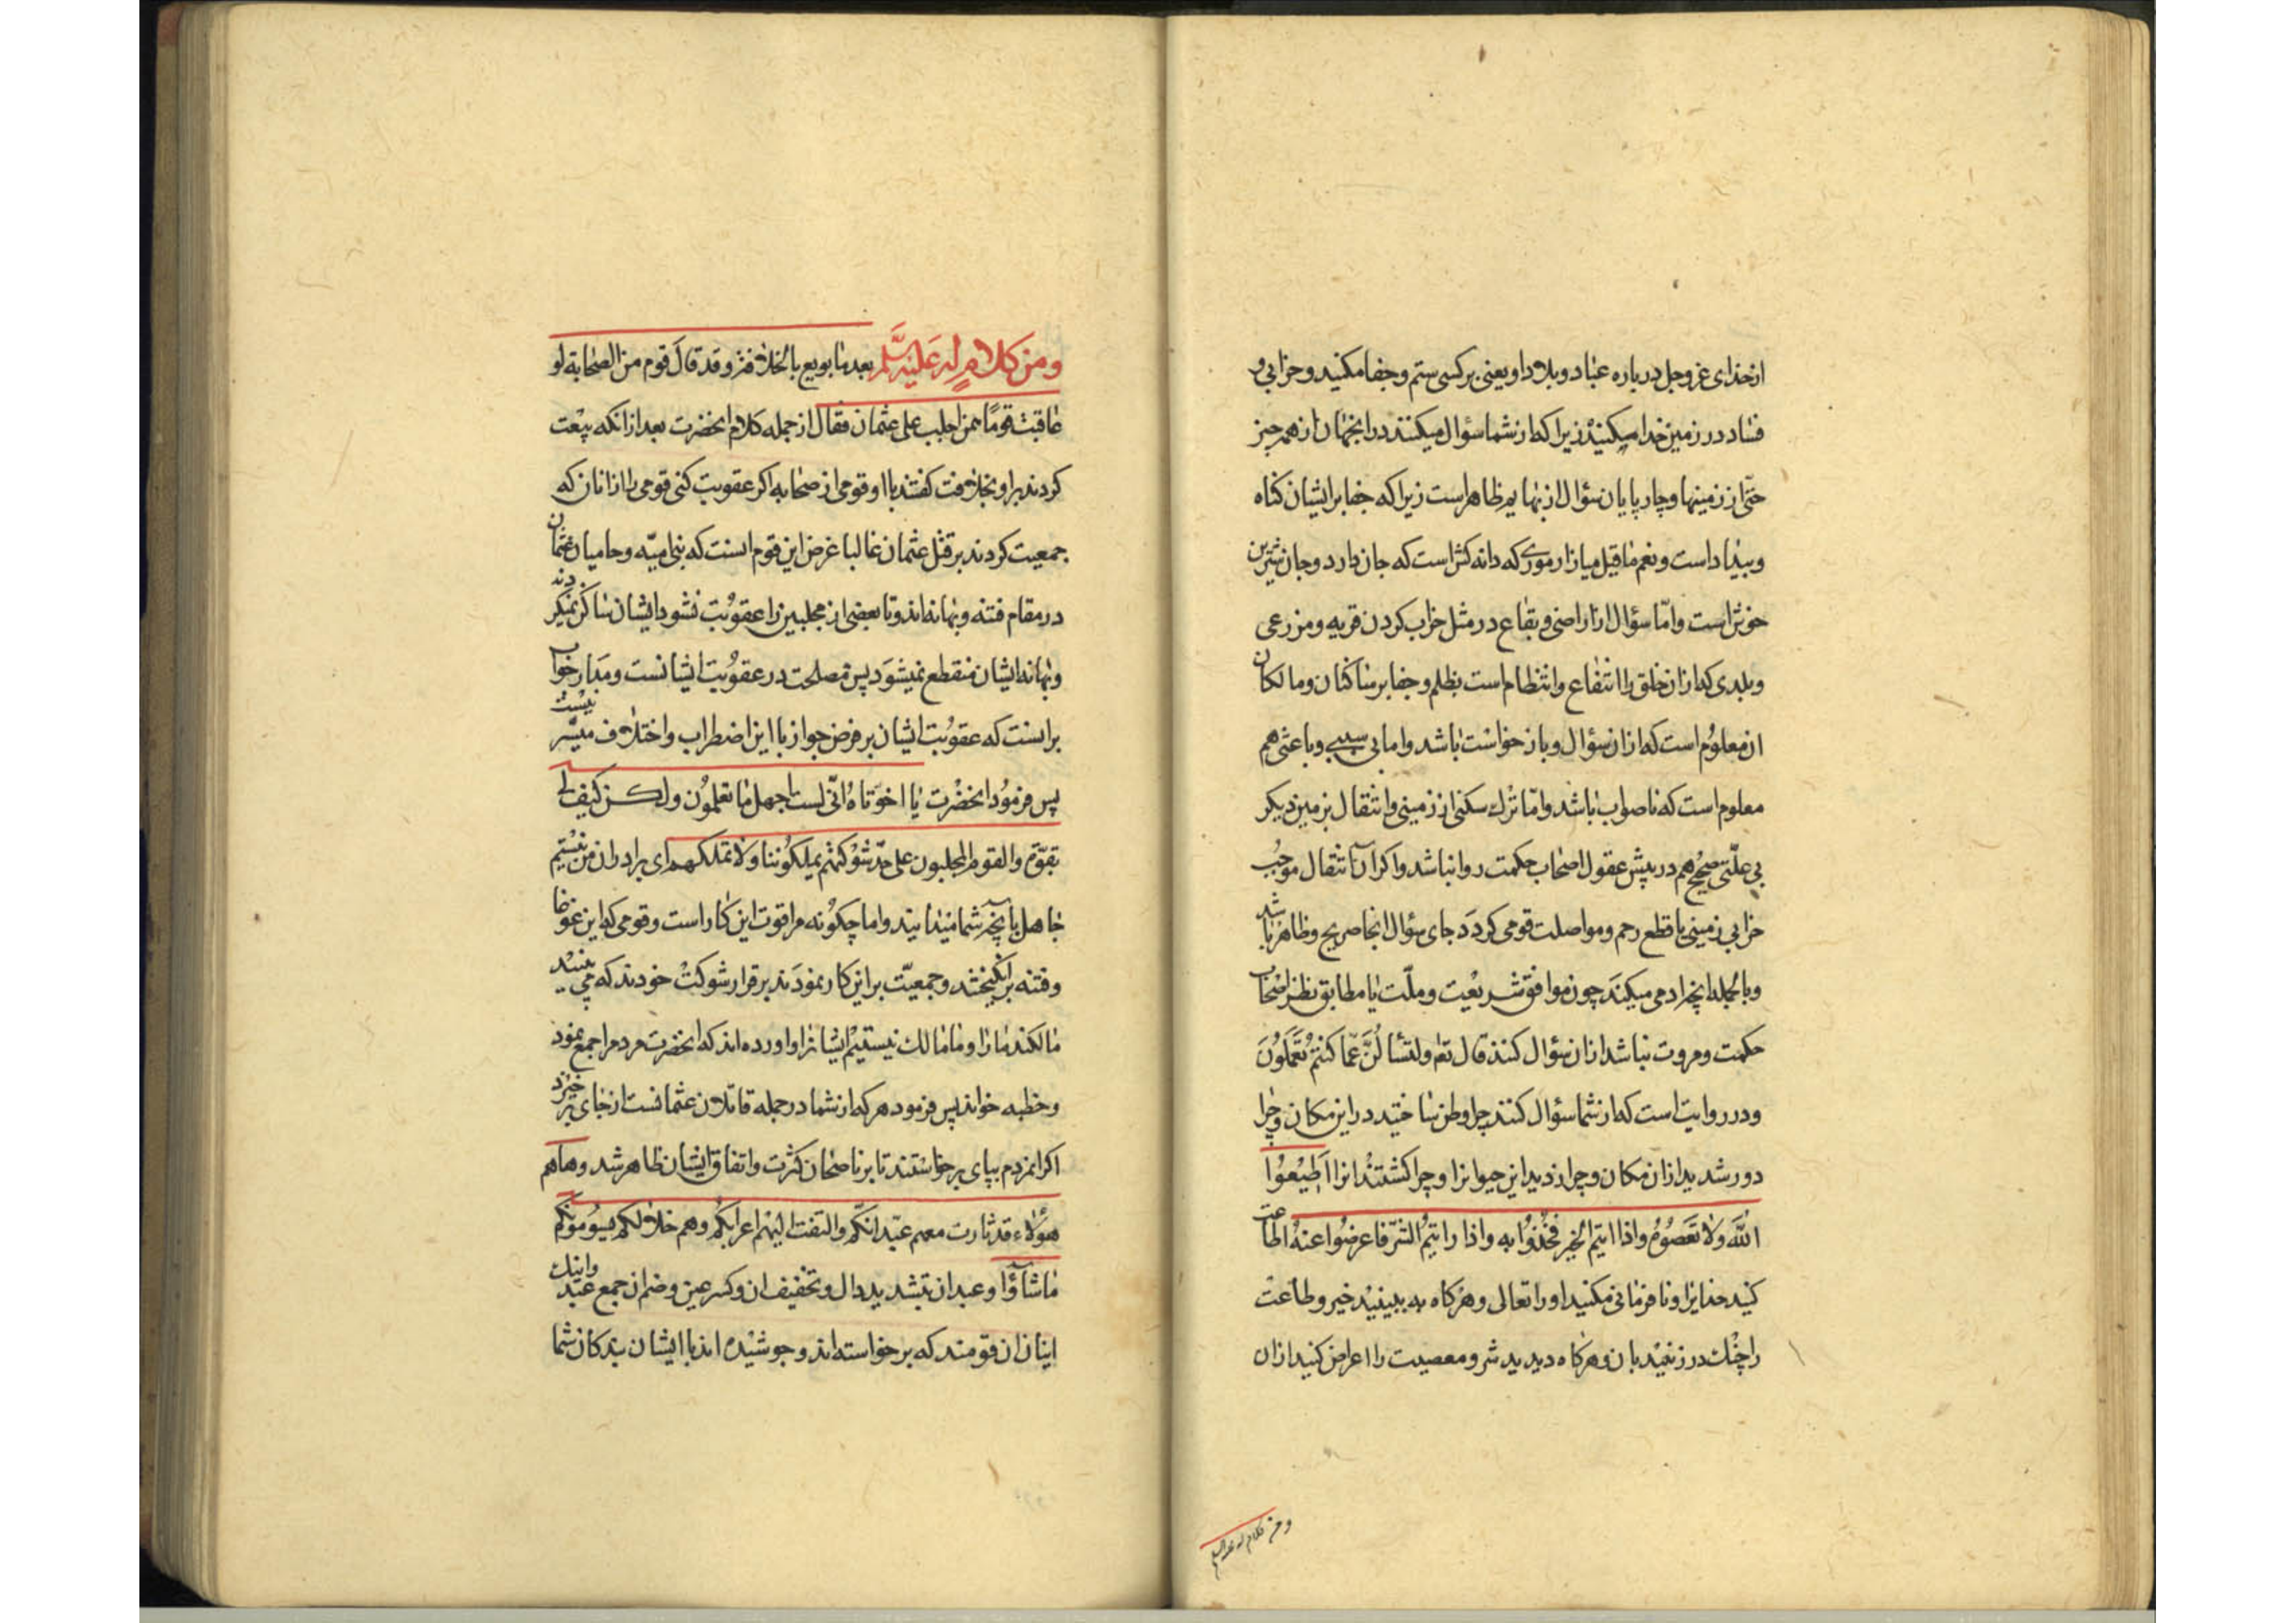 ازخدای عزوجل درباره عباد و بلاد او یعنی بر کسی ستم و جفا مکنید و خرابی و
فساد در زمین خدا میکنید زیرا که از شما سؤال میکنند در انجهان از همه چیز
حتّی از زمینها و چارپایان سؤال از بهایم ظاهر است زیرا که جفا بر ایشان کناه
و بیداد است و نعم ما قیل میازار موری که دانه کش است که جان دارد و جان شیرین
خوش است و امّا سؤال از اراضی و بقاع در مثل خراب کردن قریه و مزرعی
و بلدی که از ان خلق را انتفاع و انتظام است بظلم و جفا بر ساکنان و مالکان
ان معلوم است که از ان سؤال و باز خواست باشد و اما بی سببی و باعثی هم
معلوم است که ناصواب باشد و امّا ترک سکنی از زمینی و انتقال بزمین دیکر
بی علّتی صحیح هم در پیش عقول اصحاب حکمت روا نباشد و اکر آن انتقال موجب
خرابی زمینی یا قطع رحم و مواصلت قومی کردد جای سؤال انجا صریح و ظاهر باشد
و بالجمله انچه ادمی میکند چون موافق شریعت و ملّت یا مطابق نظر اصحاب
حکمت و مروت نباشد از ان سؤال کنند قال تعه ولتسألنّ عمّا کنتم تعملون
و در روایت است که از شما سؤال کنند چرا وطن ساختید در این مکان و چرا
دور شدید از ان مکان و چرا زدید این حیوانرا و چرا کشتید انرا اطیعوا
الله ولا تعصوه واذا رایتم الخیر فخذوا به واذا رایتم الشّر فاعرضوا عنه اطاعت
کنید خدایرا و نافرمانی مکنید او را تعالی و هر کاه به ببینید خیر و طاعت
را چنک در زنید بان و هر کاه دیدید شر و معصیت را اعراض کنید از ان
ومن کلام له علیه السلم
ومن کلام له علیه السلم بعد ما بویع بالخلافة وقد قال قوم من الصحابة لو
عاقبت قومًا ممن اجلب علی عثمان فقال از جمله کلام انحضرت بعد از انکه بیعت
کردند بر او بخلافت کفتند با او قومی از صحابه اکر عقوبت کنی قومی را از انان که
جمعیت کردند بر قتل عثمان غالبا غرض این قوم انست که بنی امیّه و حامیان عثمان
در مقام فتنه و بهانه اند و تا بعضی از مجلبین را عقوبت نشود ایشان ساکن نمیکردند
و بهانه ایشان منقطع نمیشود پس مصلحت در عقوبت ایشانست و مدار جواب
بر انست که عقوبت ایشان بر فرض جواز با این اضطراب و اختلاف میسّر نیست
پس فرمود انحضرت یا اخوتاه انّی لست اجهل ما تعلمون ولکن کیف لی
بقوّة والقوم المجلبون علی حدّ شوکتهم یملکوننا ولا نملکهم ای برادران من نیستیم
جاهل بانچه شما میدانید و اما چکونه مرا قوت این کار است و قومی که این غوغا
و فتنه بر انکیختند و جمعیّت بر این کار نمودند بر قرار شوکت خودند که می بینید
مالکند ما را و ما مالک نیستیم ایشانرا و اورده اند که انحضرت مردم را جمع نمود
و خطبه خواند پس فرمود هر که از شما در جمله قاتلان عثمانست از جای بر خیزد
اکر انمردم بپای بر خواستند تا بر ناصحان کثرت و اتفاق ایشان ظاهر شد وها هم
هؤلاء قد ثارت معهم عبدانکم والتفت الیهم اعرابکم وهم خلالکم یسومونکم
ما شاؤا و عبدان بتشدید دال و تخفیف ان و کسر عین و ضم ان جمع عبد و اینک
اینان ان قومند که بر خواسته اند و جوشیده اند با ایشان بندکان شما